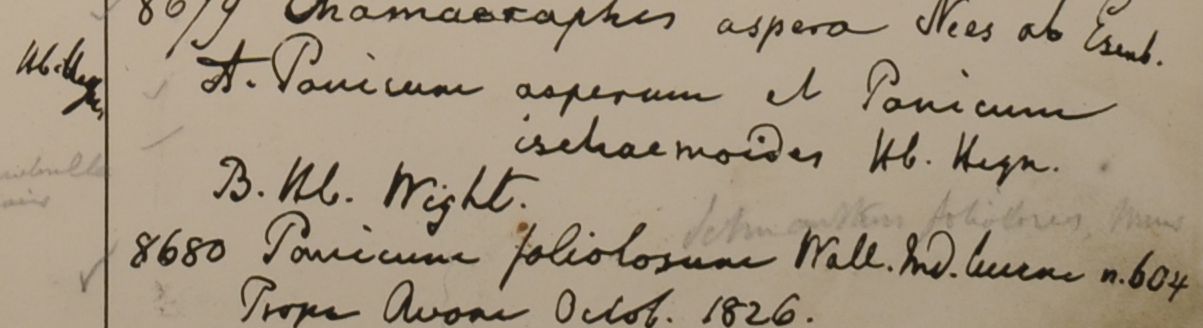 8679 Chamaeraphis aspera Nees ab Esenb.
Hb. Heyn.
A. Panicum asperum et Panicum
ischaemoides Hb. Heyn.
B. Hb. Wight.
foliolosus, Munro
8680 Panicum foliolosum Wall. MS. n. 604
Prope Avam Octob. 1826.